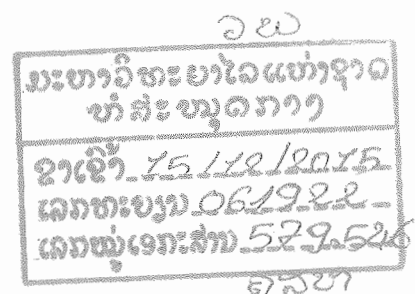 ວພ
ມະຫາວິທະຍາໄລແຫ່ງຊາດ
ຫໍສະໝຸດກາງ
ຂາເຂົ້າ 15/12/2015
ເລກທະບຽນ 061922
ເລກໝູ່ເອກະສານ 579.546